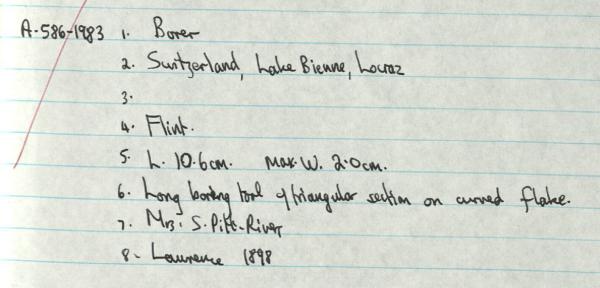 A-586-1983 1. Borer
2. Switzerland, Lake Bienne, Locraz
3.
4. Flint.
5. L. 10.6cm. Max. W. 2.0cm.
6. Long boring tool of triangular section on curved flake.
7. Mrs. S. Pitt-River
8- Lawrence 1898